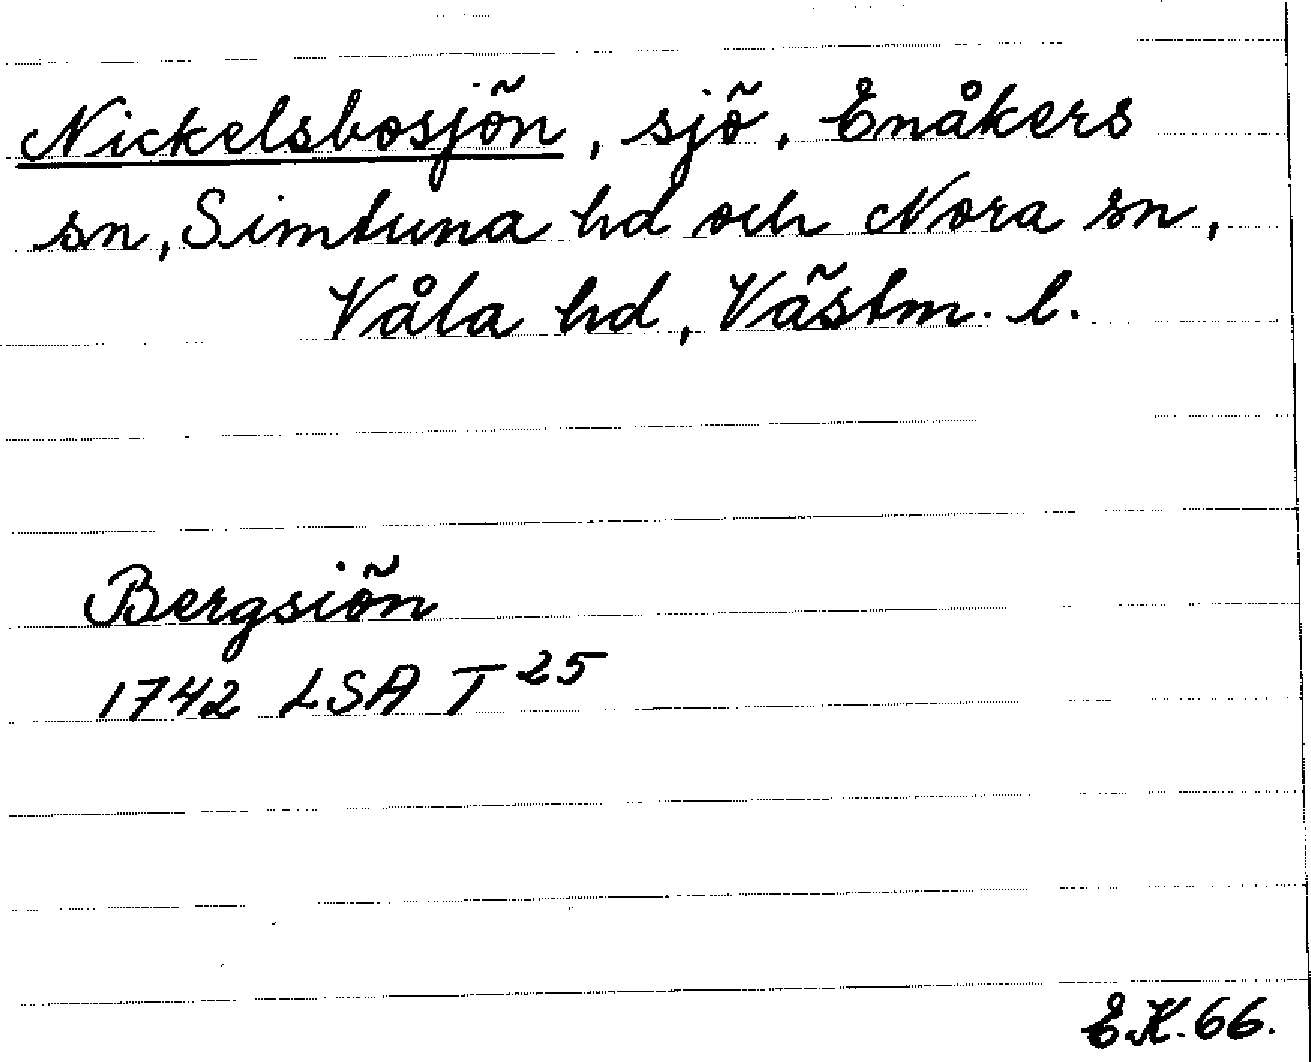 Nickelsbosjön, sjö, Enåkers
sn, Simtuna hd och Nora sn,
Våla hd, Västm. l.
Bergsiön
1742 LSA T 25
E.K. 66.